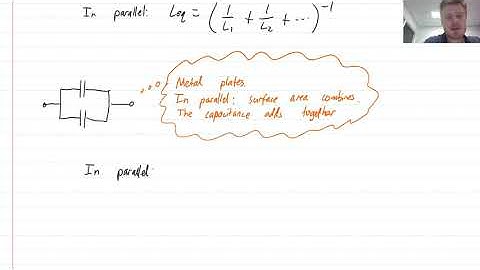 In parallel: Leq = (1/L1 + 1/L2 + ...)^-1
Metal plates.
In parallel: surface area combines.
The capacitance adds together
In parallel: